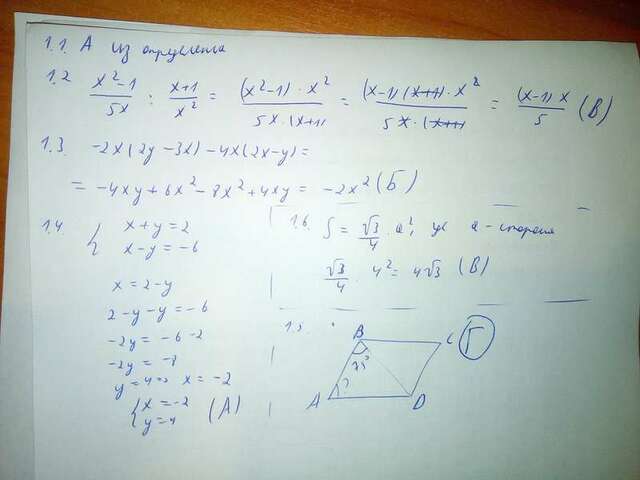 1.1. А из определения
1.2 (x²-1)/5x : (x+1)/x² = ((x²-1)·x²)/(5x·(x+1)) = ((x-1)(x+1)·x²)/(5x·(x+1)) = ((x-1)x)/5 (В)
1.3. -2x(2y-3x)-4x(2x-y)=
= -4xy+6x²-8x²+4xy = -2x² (Б)
1.4. { x+y=2
x-y=-6
x=2-y
2-y-y=-6
-2y=-6-2
-2y=-8
y=4 => x=-2
{ x=-2
y=4 (А)
1.6. S = √3/4 · a², где a - сторона
√3/4 · 4² = 4√3 (В)
1.5.
B C Г
?
A D